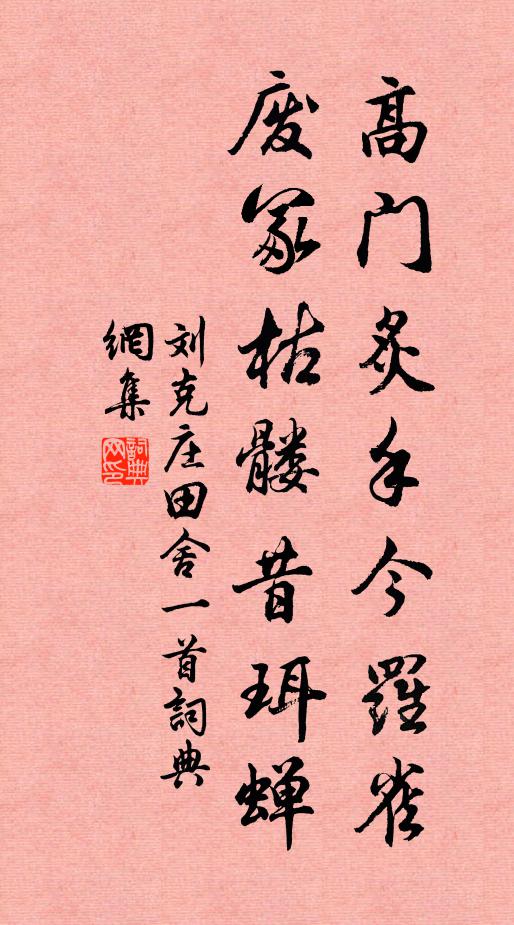 高门炙手今羅雀
废冢枯髅昔珥蝉
刘克庄田舍一首詞典
網集
詞典网印